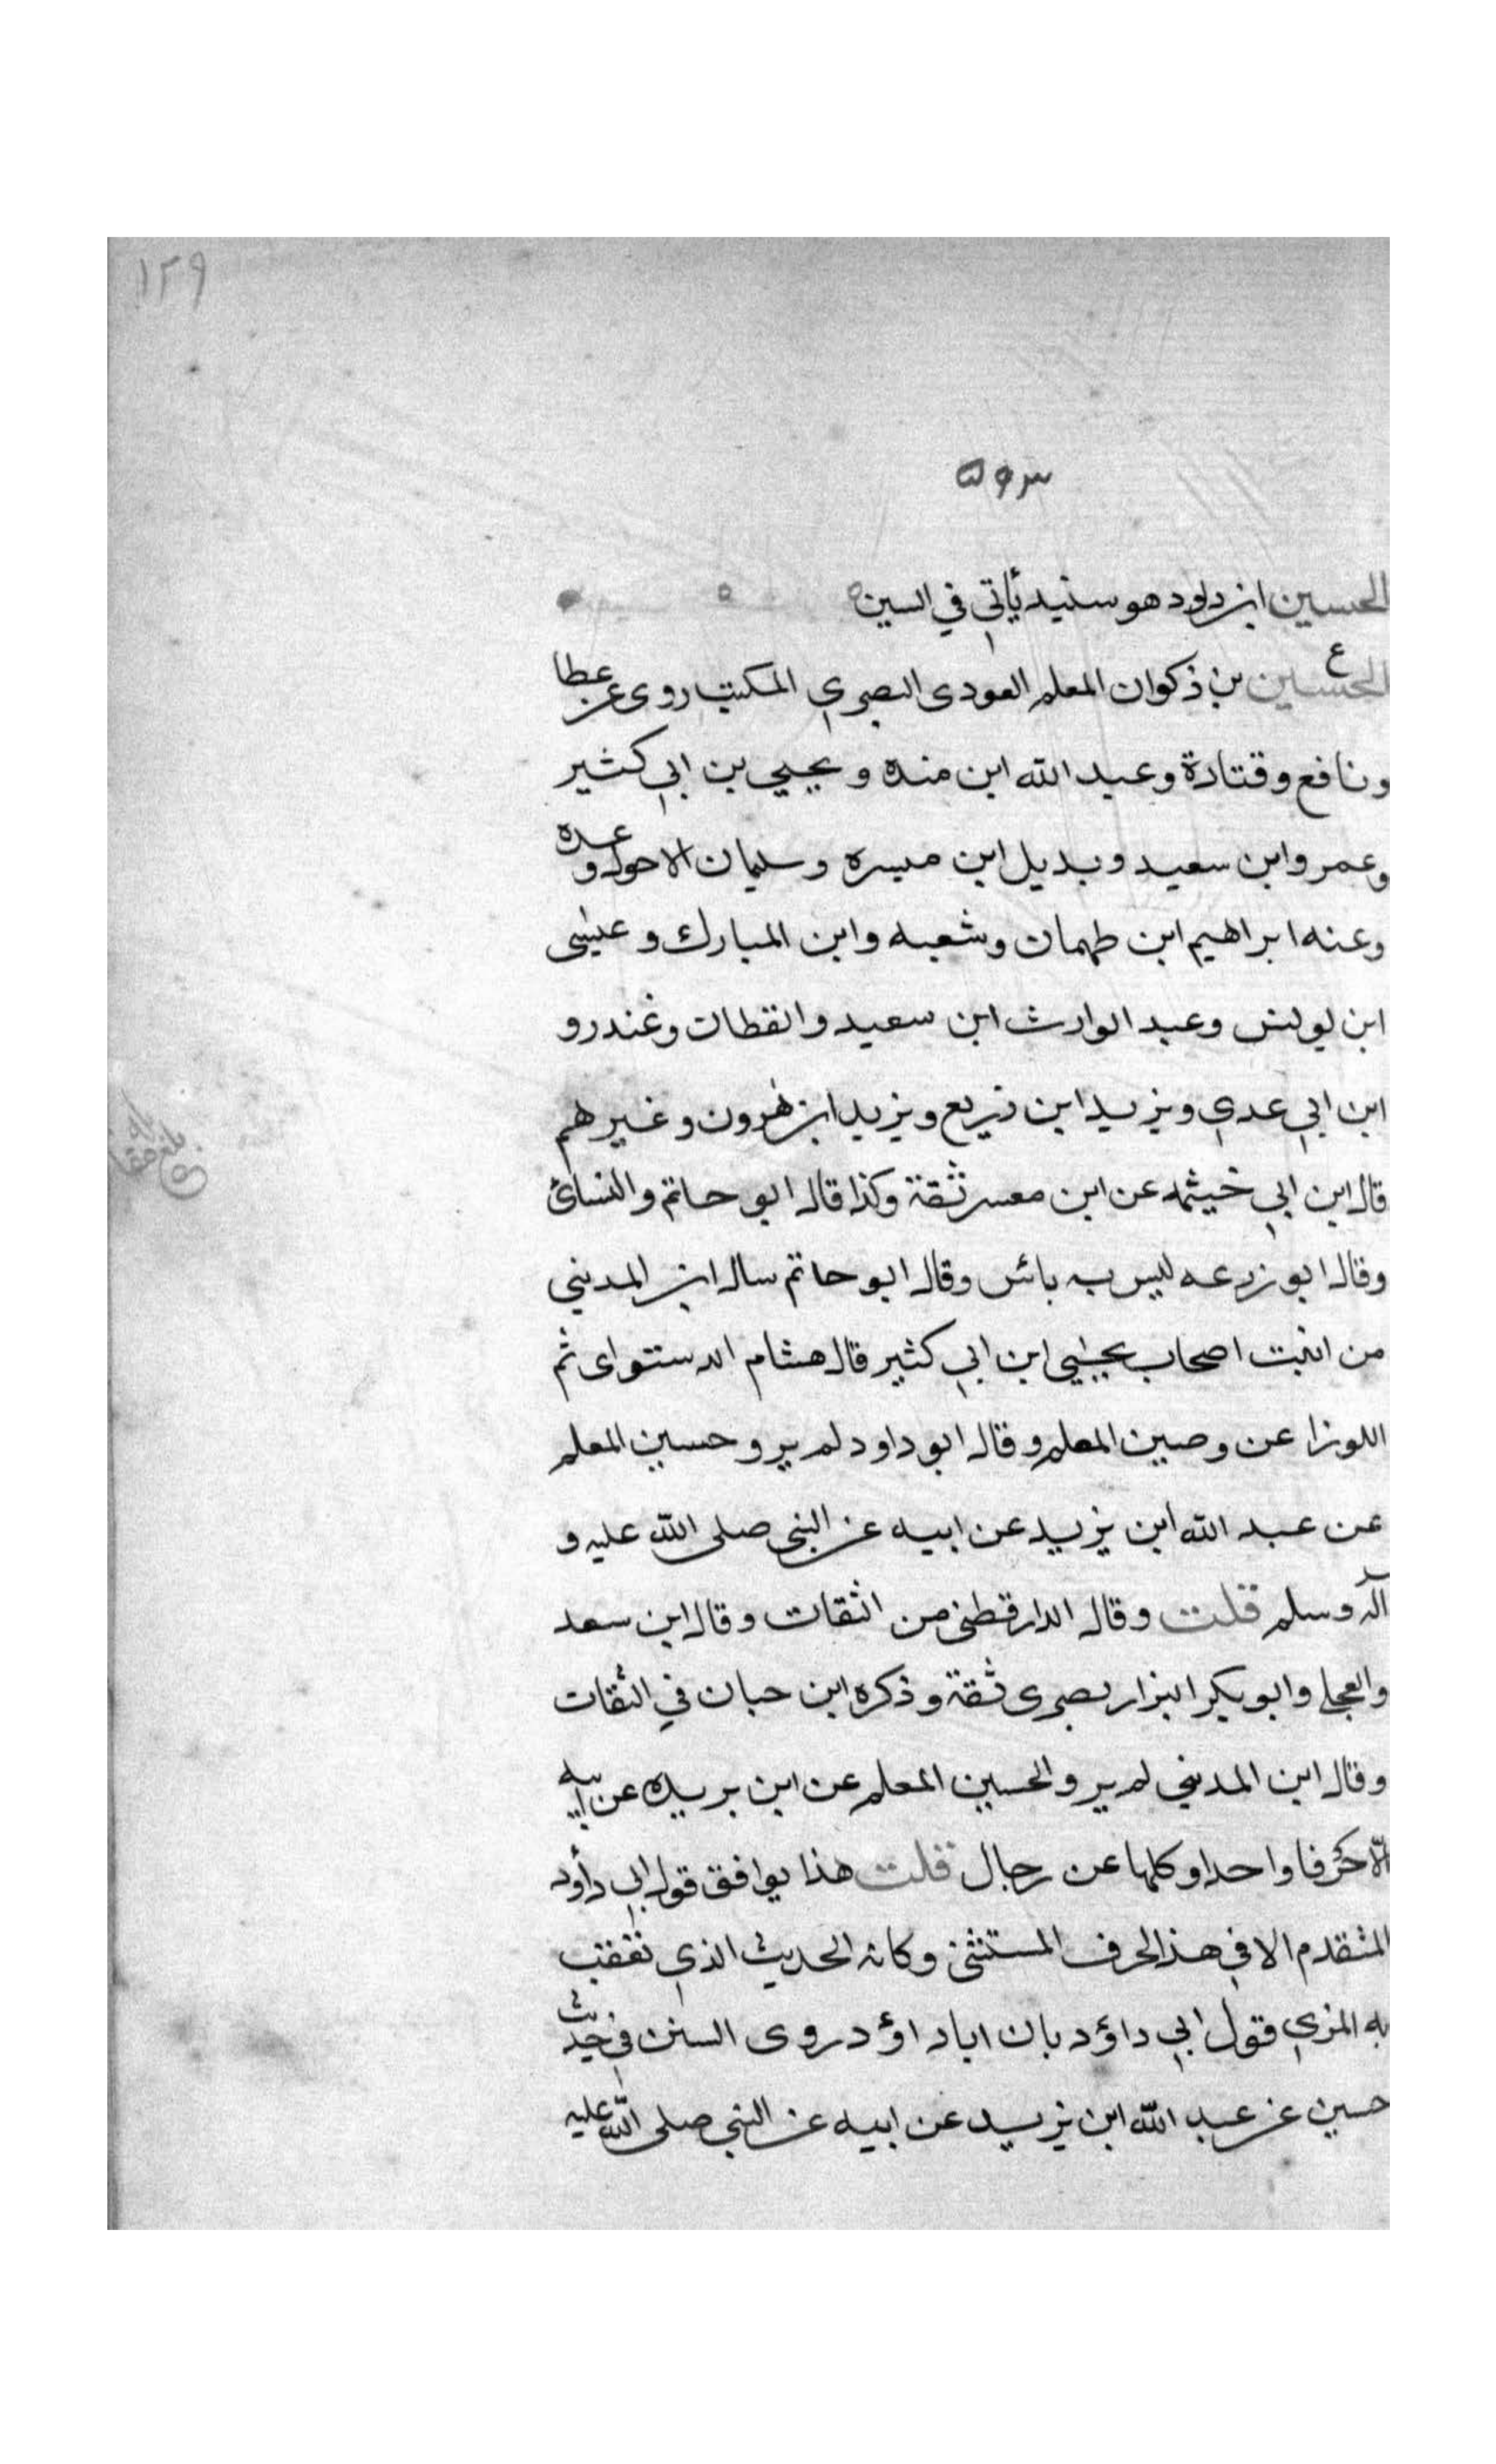 ١٢٩
الحسين ابن داود هو سنيد يأتي في السين
ع
الحسين بن ذكوان المعلم العودى البصري المكتب روى عن عطا
ونافع وقتادة وعبد الله ابن منده ويحيي بن ابي كثير
وعمر وابن سعيد وبديل ابن ميسره وسليمان الاحول وعده
وعنه ابراهيم ابن طهمان وشعبه وابن المبارك وعيسى
ابن يونس وعبد الوارث ابن سعيد والقطان وغندر و
ابن ابي عدي ويزيد ابن زريع ويزيد ابن هرون وغيرهم
قال ابن ابي خيثمه عن ابن معين ثقة وكذا قال ابو حاتم والنسائ
وقال ابو زرعه ليس به بائس وقال ابو حاتم سال ابن المديني
من اثبت اصحاب يحيي ابن ابي كثير قال هشام الدستواى ثم
اللوزا عن وصين المعلم وقال ابو داود لم يرو حسين المعلم
عن عبد الله ابن يزيد عن ابيه عن النبي صلى الله عليه و
آله وسلم قلت وقال الدارقطنى من الثقات وقال ابن سعد
والعجلى وابو بكر البزار بصرى ثقة وذكره ابن حبان في الثقات
وقال ابن المديني لم يرو الحسين المعلم عن ابن بريده عن ابيه
الا حرفا واحدا وكلها عن رجال قلت هذا يوافق قول ابي داود
المتقدم الا في هذا الحرف المستثنى وكانه الحديث الذي تعقب
به المزي قول ابي داؤد بان ابا داؤد روى السنن في حديث
حسين عن عبد الله ابن يزيد عن ابيه عن النبي صلى الله عليه